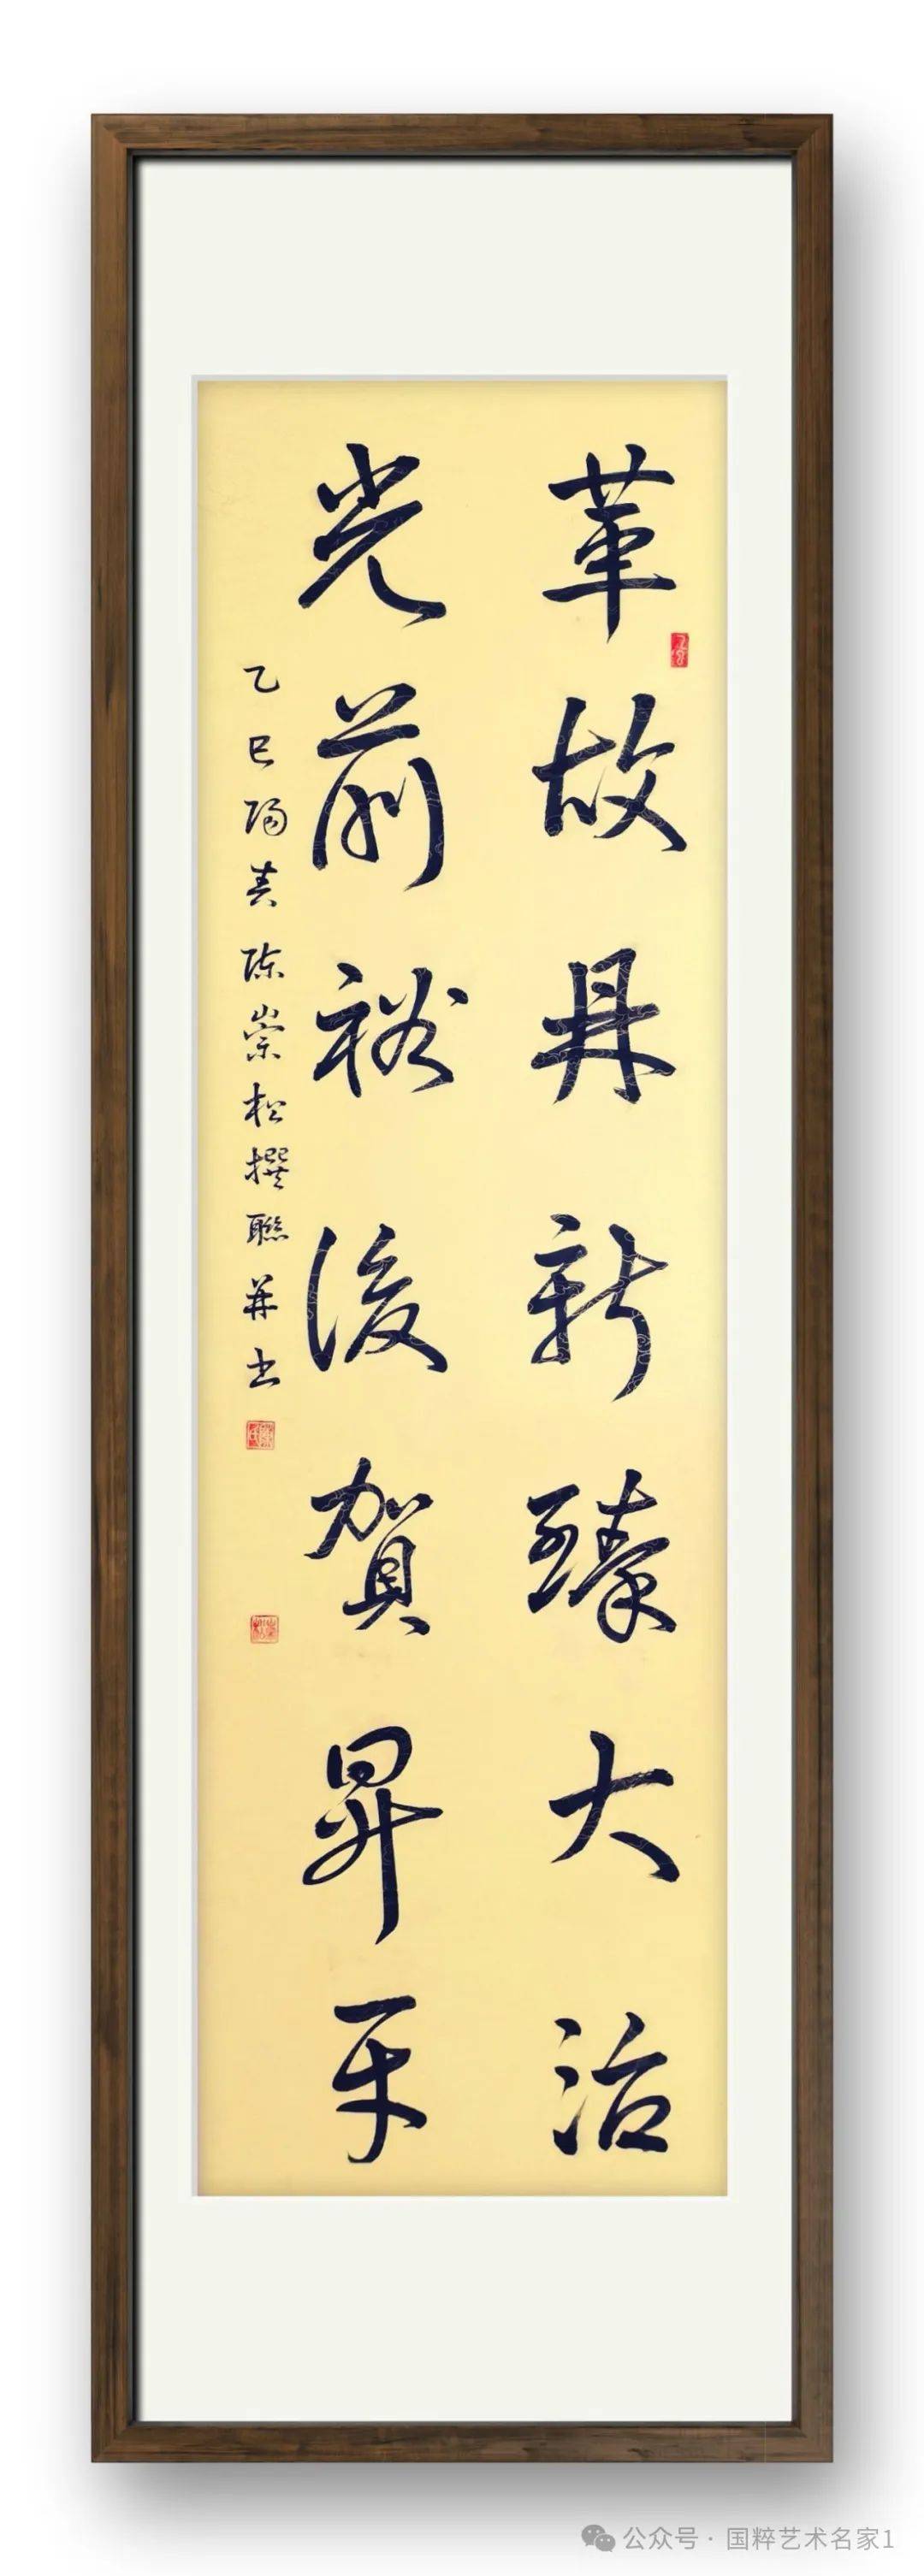 革故鼎新臻大治
光前裕後賀昇平
乙巳陽春陳崇松撰聯并書
公众号·国粹艺术名家1